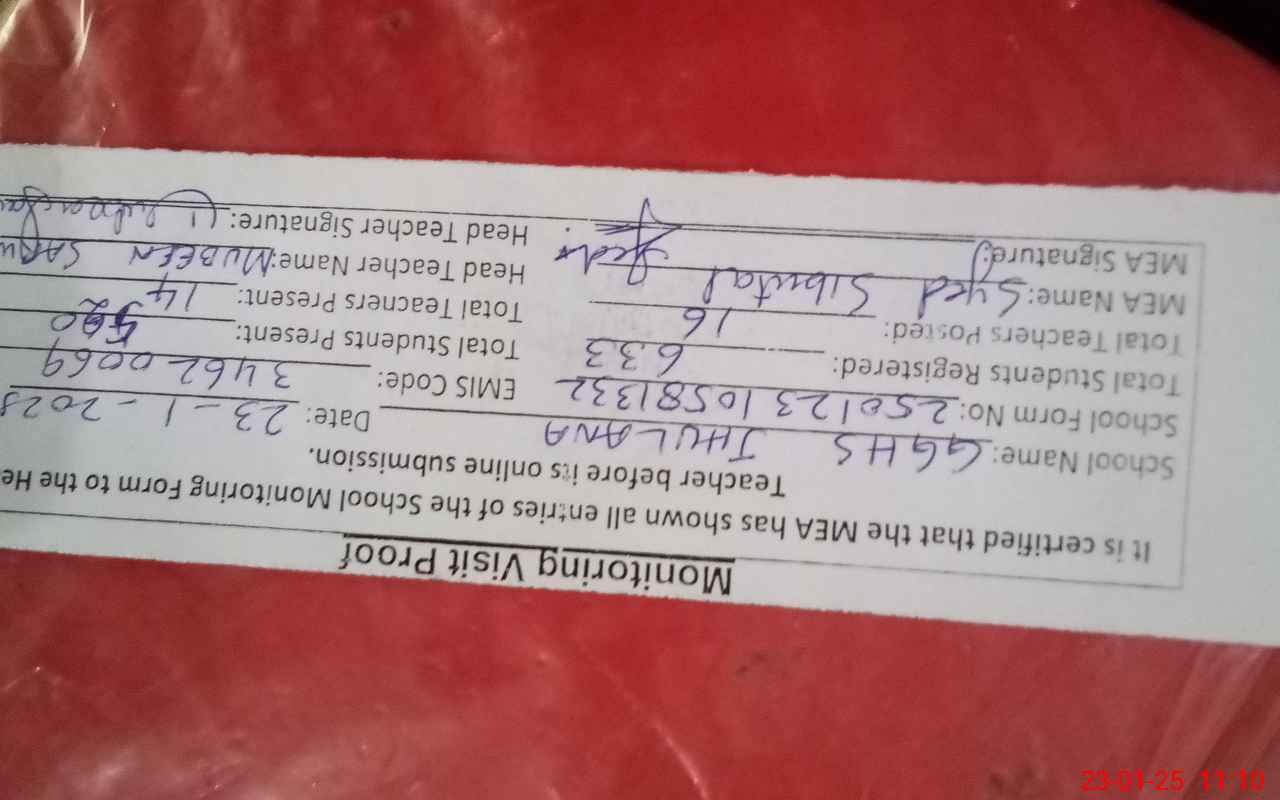 Monitoring Visit Proof
It is certified that the MEA has shown all entries of the School Monitoring Form to the He
Teacher before its online submission.
School Name: GGHS JHULANA Date: 23-1-2025
School Form No: 25012310581332 EMIS Code: 34620069
Total Students Registered: 633 Total Students Present:
Total Teachers Posted: 16 Total Teachers Present: 14
MEA Name: Syed Sibutal Head Teacher Name: MUBEEN
MEA Signature: Head Teacher Signature:
23-01-25 11:10